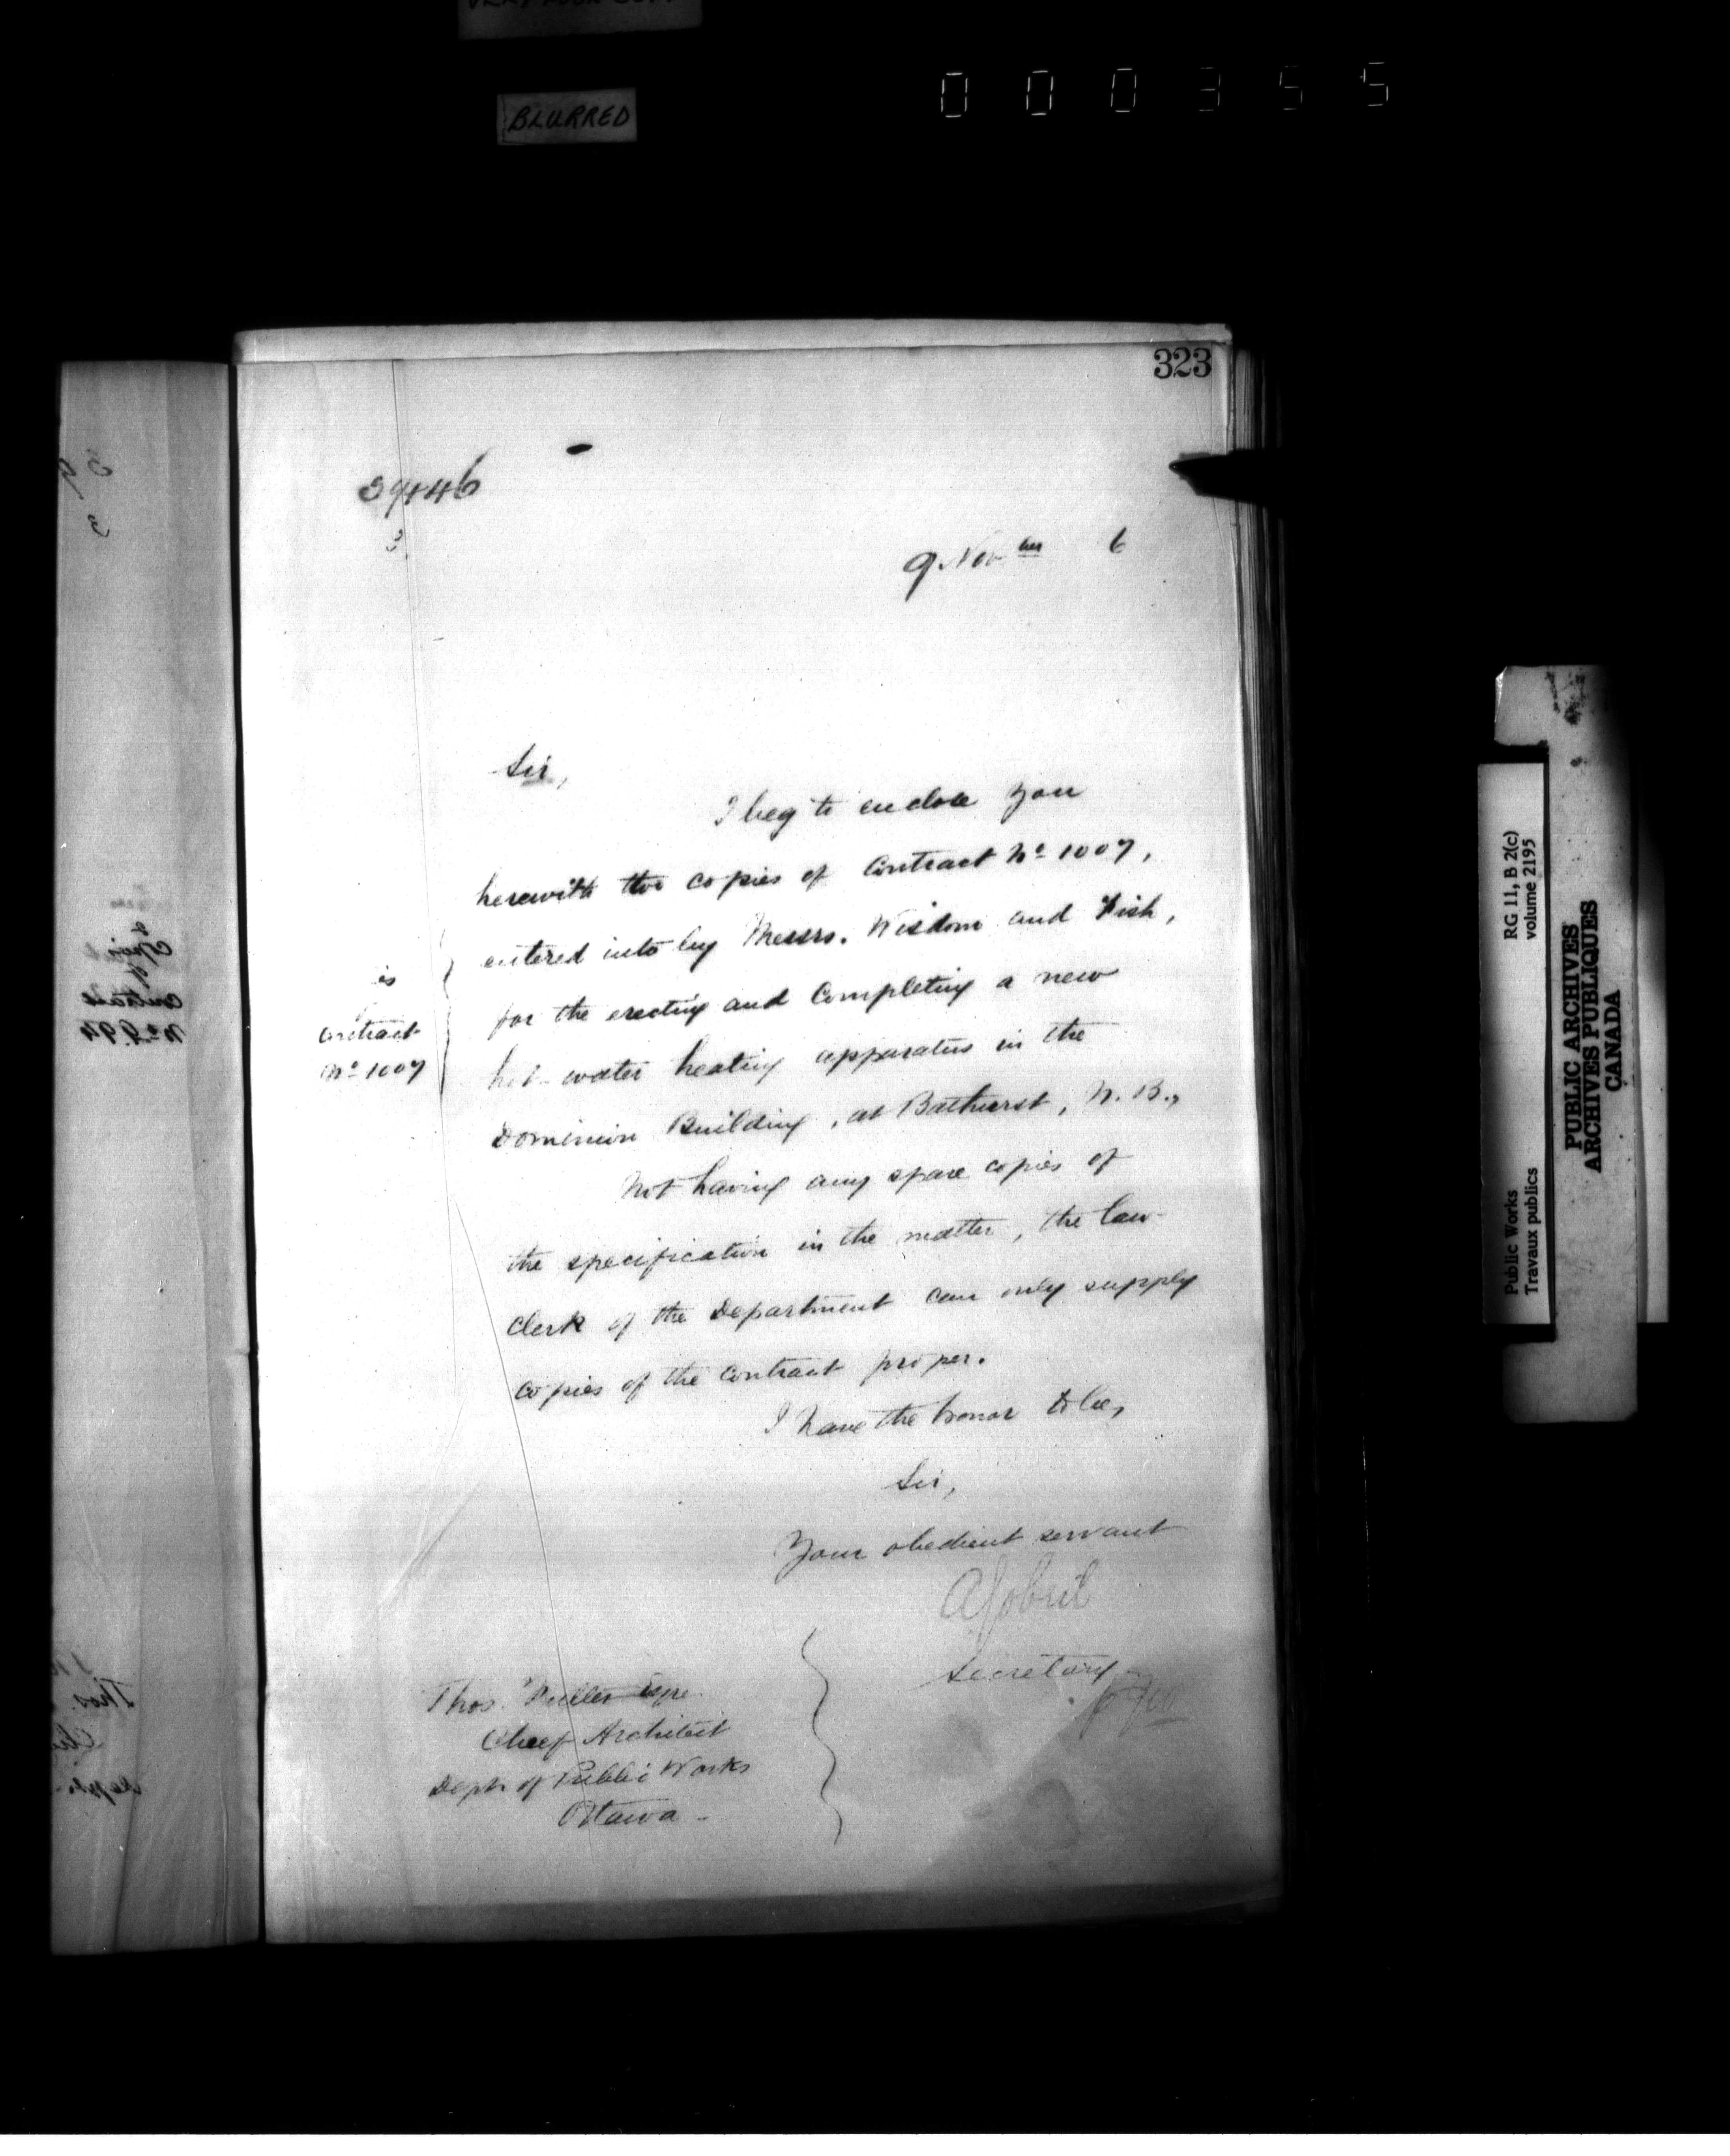 BLURRED
000355
323
39446
3
9 Nov ber 6
Sir,
I beg to enclose you
herewith two copies of Contract No 1007,
entered into by Messrs. Wisdom and Fish,
for the erecting and completing a new
hot-water heating apparatus in the
Dominion Building, at Bathurst, N.B.,
Not having any spare copies of
the specification in the matter, the law-
clerk of the Department can only supply
copies of the contract proper.
I have the honor to be,
Sir,
Your obedient servant
A Gobeil
Secretary
is
contract
No 1007
Thos. Fuller Esqre
Chief Architect
Dept of Public Works
Ottawa -
RG 11, B 2(c)
volume 2195
Public Works
Travaux publics
PUBLIC ARCHIVES
ARCHIVES PUBLIQUES
CANADA